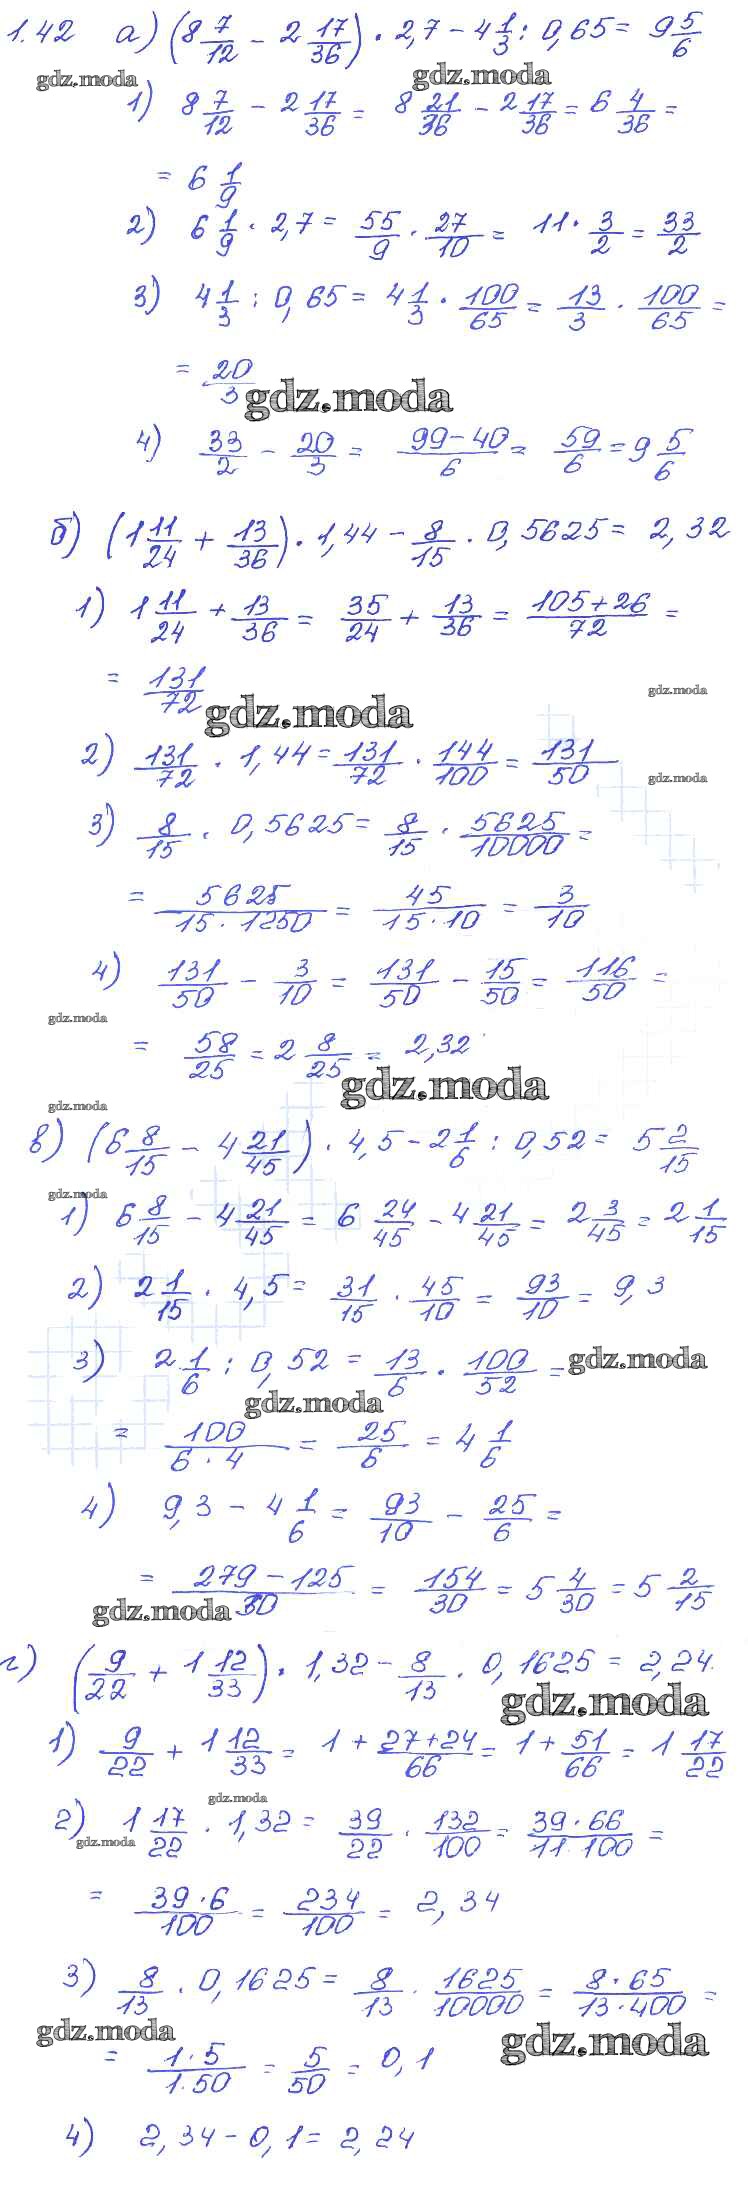 1.42 а) (8 7/12 - 2 17/36) · 2,7 - 4 1/3 : 0,65 = 9 5/6
gdz.moda gdz.moda
1) 8 7/12 - 2 17/36 = 8 21/36 - 2 17/36 = 6 4/36 =
= 6 1/9
2) 6 1/9 · 2,7 = 55/9 · 27/10 = 11 · 3/2 = 33/2
3) 4 1/3 : 0,65 = 4 1/3 · 100/65 = 13/3 · 100/65 =
= 20/3
gdz.moda
4) 33/2 - 20/3 = 99-40/6 = 59/6 = 9 5/6
б) (1 11/24 + 13/36) · 1,44 - 8/15 · 0,5625 = 2,32
1) 1 11/24 + 13/36 = 35/24 + 13/36 = 105+26/72 =
= 131/72
gdz.moda
gdz.moda
2) 131/72 · 1,44 = 131/72 · 144/100 = 131/50
gdz.moda
3) 8/15 · 0,5625 = 8/15 · 5625/10000 =
= 5625/15·1250 = 45/15·10 = 3/10
4) 131/50 - 3/10 = 131/50 - 15/50 = 116/50 =
gdz.moda
= 58/25 = 2 8/25 = 2,32
gdz.moda
gdz.moda
в) (6 8/15 - 4 21/45) · 4,5 - 2 1/6 : 0,52 = 5 2/15
gdz.moda
1) 6 8/15 - 4 21/45 = 6 24/45 - 4 21/45 = 2 3/45 = 2 1/15
2) 2 1/15 · 4,5 = 31/15 · 45/10 = 93/10 = 9,3
3) 2 1/6 : 0,52 = 13/6 · 100/52 =
gdz.moda
gdz.moda
= 100/6·4 = 25/6 = 4 1/6
4) 9,3 - 4 1/6 = 93/10 - 25/6 =
= 279-125/30 = 154/30 = 5 4/30 = 5 2/15
gdz.moda
г) (9/22 + 1 12/33) · 1,32 - 8/13 · 0,1625 = 2,24.
gdz.moda
1) 9/22 + 1 12/33 = 1 + 27+24/66 = 1 + 51/66 = 1 17/22
gdz.moda
2) 1 17/22 · 1,32 = 39/22 · 132/100 = 39·66/11 100 =
gdz.moda
= 39·6/100 = 234/100 = 2,34
3) 8/13 · 0,1625 = 8/13 · 1625/10000 = 8·65/13·400 =
gdz.moda gdz.moda
= 1·5/1·50 = 5/50 = 0,1
4) 2,34 - 0,1 = 2,24